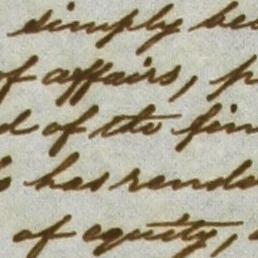 simply bec
of affairs, p
d of the fin
s has rende
of equity,